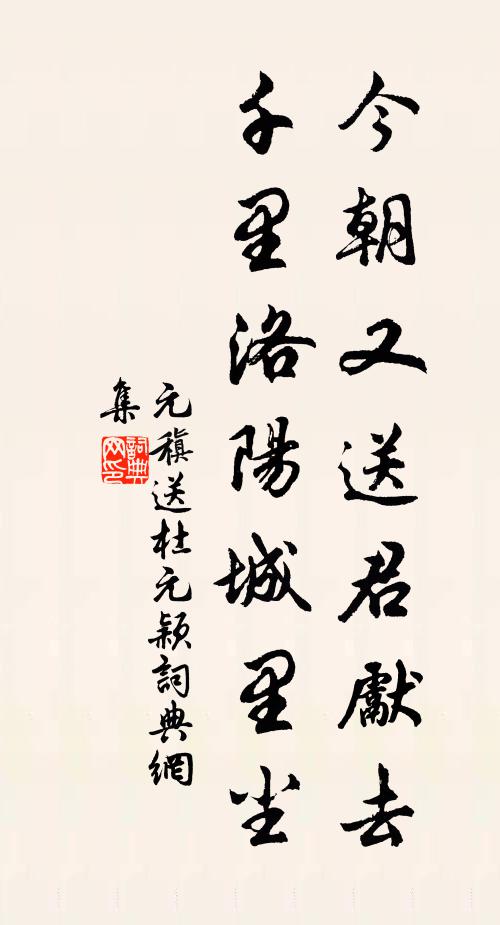 今朝又送君獻去
千里洛陽城里尘
元稹送杜元穎詞典網
集
詞典
网印